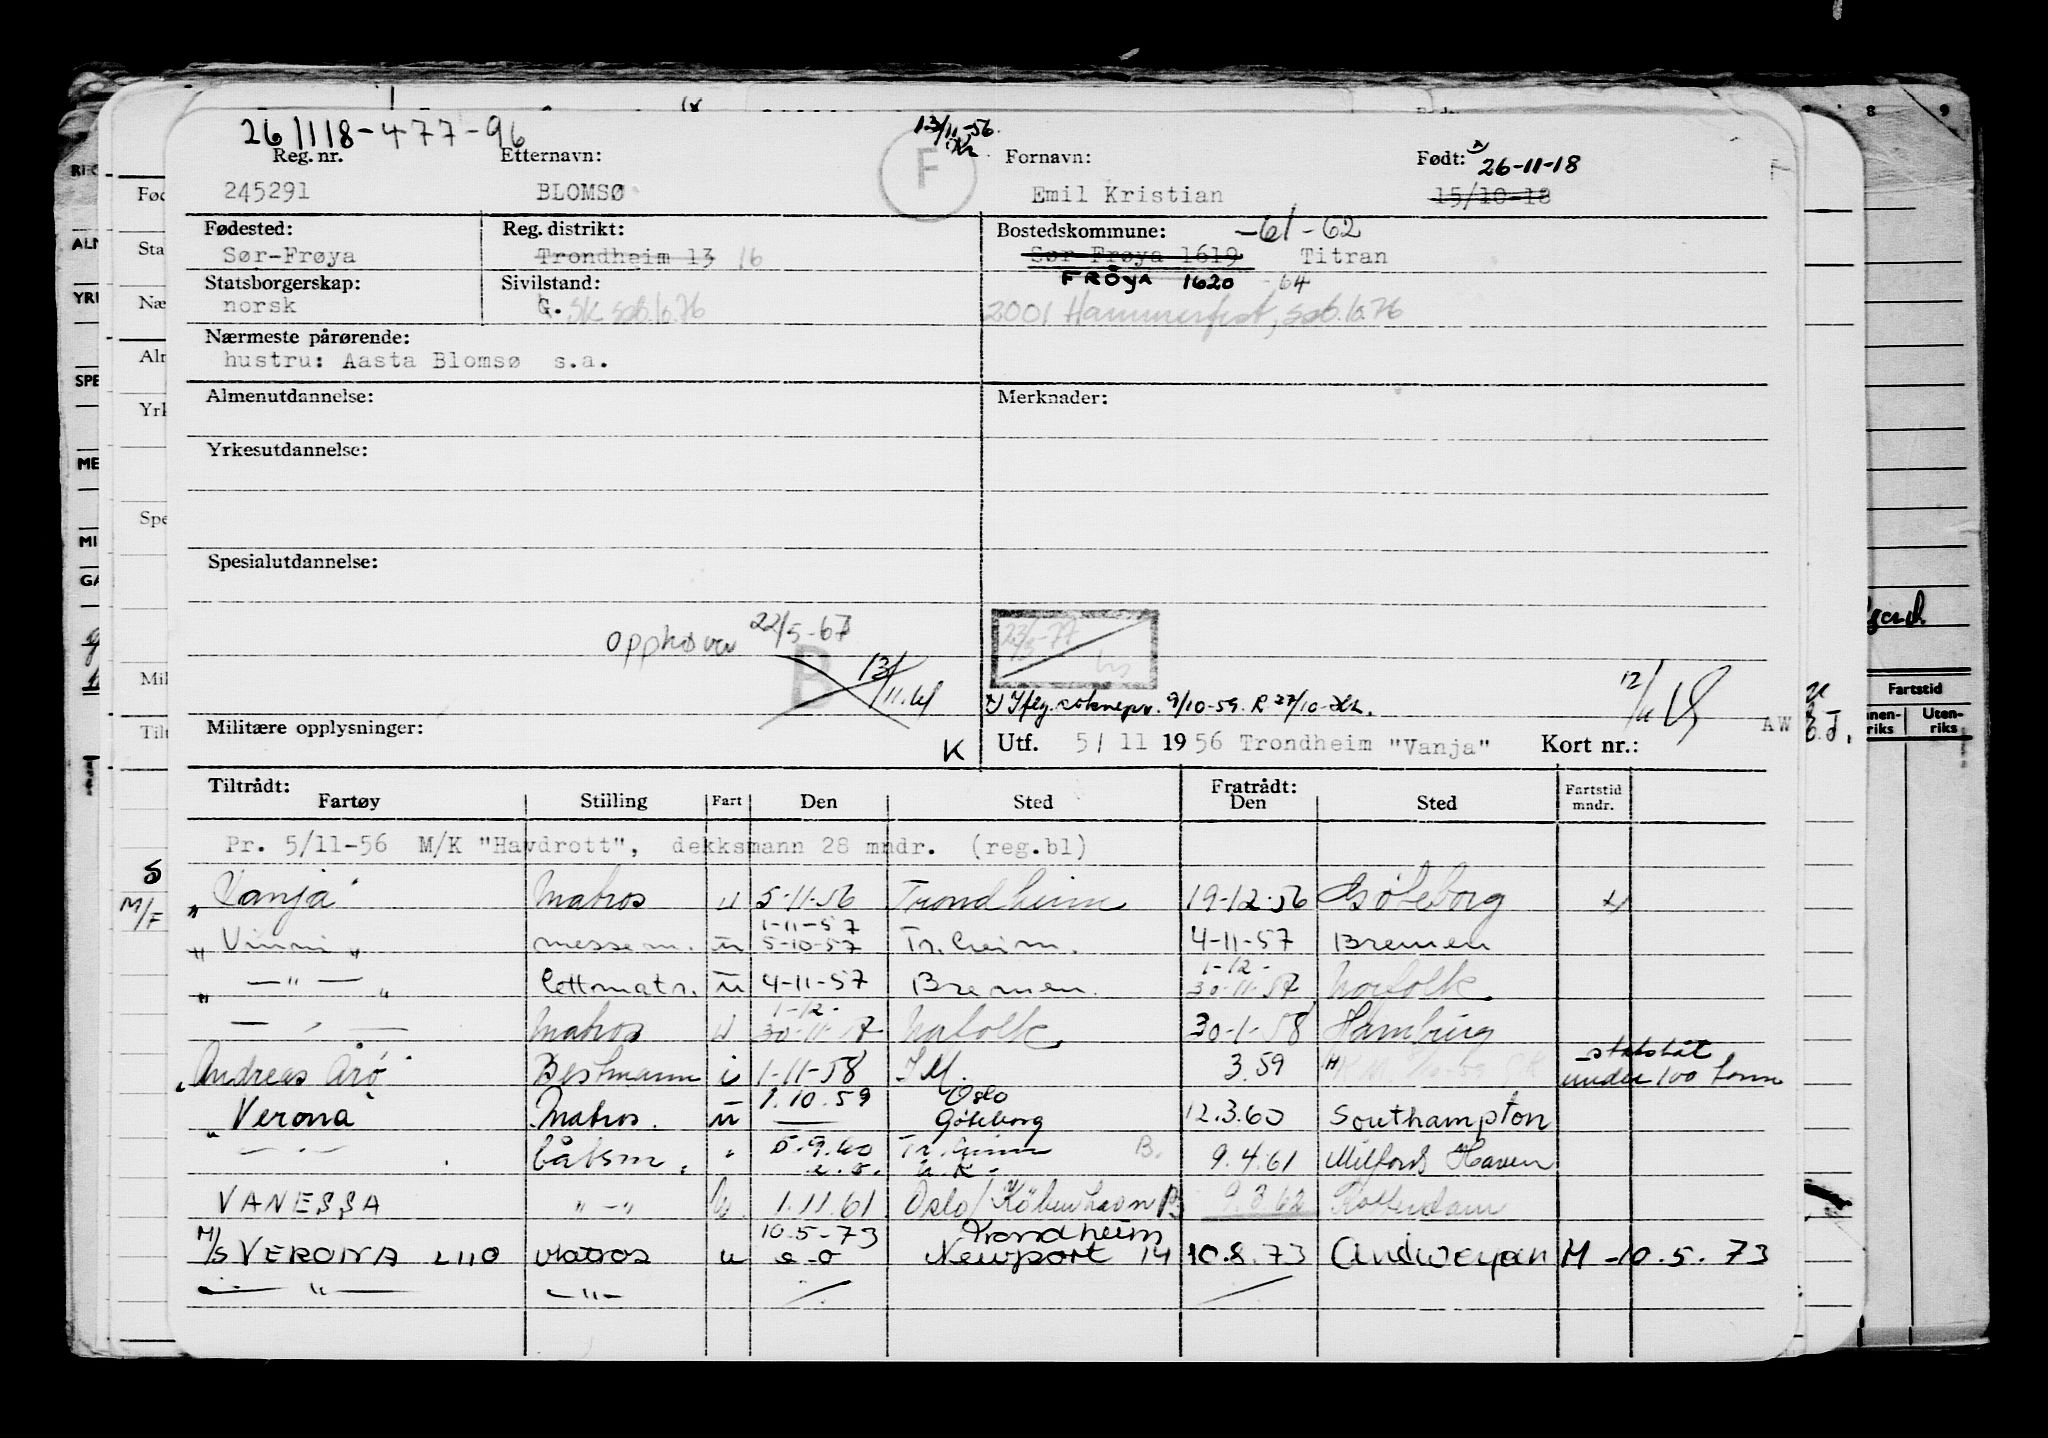 26 1118-477-96
13/11-56
Reg. nr. Etternavn: F Fornavn: Født: 26-11-18
245291 BLOMSØ Emil Kristian 15/10-18
Fødested: Reg. distrikt: Bostedskommune: -61-62
Sør-Frøya Trondheim 13 16 Sør-Frøya 1619 Titran
Statsborgerskap: Sivilstand: FRØYA 1620 -64
norsk G. SK 2001 Hammerfest,
Nærmeste pårørende:
hustru: Aasta Blomsø s.a.
Almenutdannelse: Merknader:
Yrkesutdannelse:
Spesialutdannelse:
Opphører 22/5-67 B 13/11.61
x) Iflg. soknepr. 9/10-59. R 27/10-
Militære opplysninger: K Utf. 5/ 11 1956 Trondheim "Vanja" Kort nr.: AW
Tiltrådt: Fratrådt: Fartstid
Fartøy Stilling Fart Den Sted Den Sted mndr.
Pr. 5/11-56 M/K "Havdrott", dekksmann 28 mndr. (reg.bl)
"Vanja" Matros u 5-11-56 Trondheim 19-12-56 Göteborg
1-11-57
"Vinni" messem. u 5-10-57 Tr.heim. 4-11-57 Bremen
1-12-
— " — lettmatr. u 4-11-57 Bremen. 30-11-57 Norfolk
1-12-
— " — Matros u 30-11-57 Norfolk 30-1-58 Hamburg
"Andreas Årø" Bestmann i 1-11-58 3.59 statsbåt
under 100 tonn
1.10.59 Oslo
"Verona" Matros. u — Göteborg 12.3.60 Southampton
— " — båtsm. " 5.9.60 Tr.heim B. 9.4.61 Milford Haven
VANESSA " - " u. 1.11.61 Oslo/København 9.3.62 Rotterdam
10.5-73 Trondheim
M/S VERONA 2110 Matros u e-o Newport 14 10.8.73 Andwerpen M -10.5.73
— " — — " —